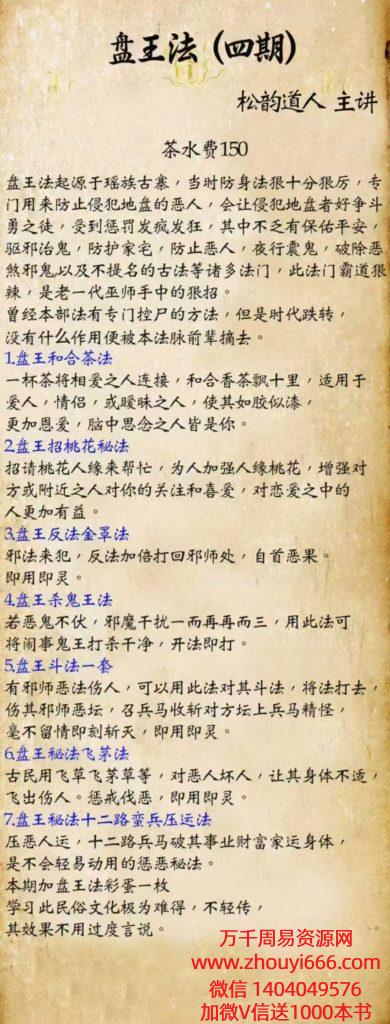 盘王法（四期）
松韵道人 主讲
茶水费150
盘王法起源于瑶族古寨，当时防身法狠十分狠厉，专
门用来防止侵犯地盘的恶人，会让侵犯地盘者好争斗
勇之徒，受到惩罚发疯发狂，其中不乏有保佑平安，
驱邪治鬼，防护家宅，防止恶人，夜行震鬼，破除恶
煞邪鬼以及不提名的古法等诸多法门，此法门霸道狠
辣，是老一代巫师手中的狠招。
曾经本部法有专门控尸的方法，但是时代跌转，
没有什么作用便被本法脉前辈摘去。
1.盘王和合茶法
一杯茶将相爱之人连接，和合香茶飘十里，适用于
爱人，情侣，或暧昧之人，使其如胶似漆，
更加恩爱，脑中思念之人皆是你。
2.盘王招桃花秘法
招请桃花人缘来帮忙，为人加强人缘桃花，增强对
方或附近之人对你的关注和喜爱，对恋爱之中的
人更加有益。
3.盘王反法金罩法
邪法来犯，反法加倍打回邪师处，自首恶果。
即用即灵。
4.盘王杀鬼王法
若恶鬼不伏，邪魔干扰一而再再而三，用此法可
将闹事鬼王打杀干净，开法即打。
5.盘王斗法一套
有邪师恶法伤人，可以用此法对其斗法，将法打去，
伤其邪师恶坛，召兵马收斩对方坛上兵马精怪，
毫不留情即刻斩灭，即用即灵。
6.盘王秘法飞茅法
古民用飞草飞茅草等，对恶人坏人，让其身体不适，
飞出伤人。惩戒伐恶，即用即灵。
7.盘王秘法十二路蛮兵压运法
压恶人运，十二路兵马破其事业财富家运身体，
是不会轻易动用的惩恶秘法。
本期加盘王法彩蛋一枚
学习此民俗文化极为难得，不轻传，
其效果不用过度言说。
万千周易资源网
www.zhouyi666.com
微信 1404049576
加微V信送1000本书